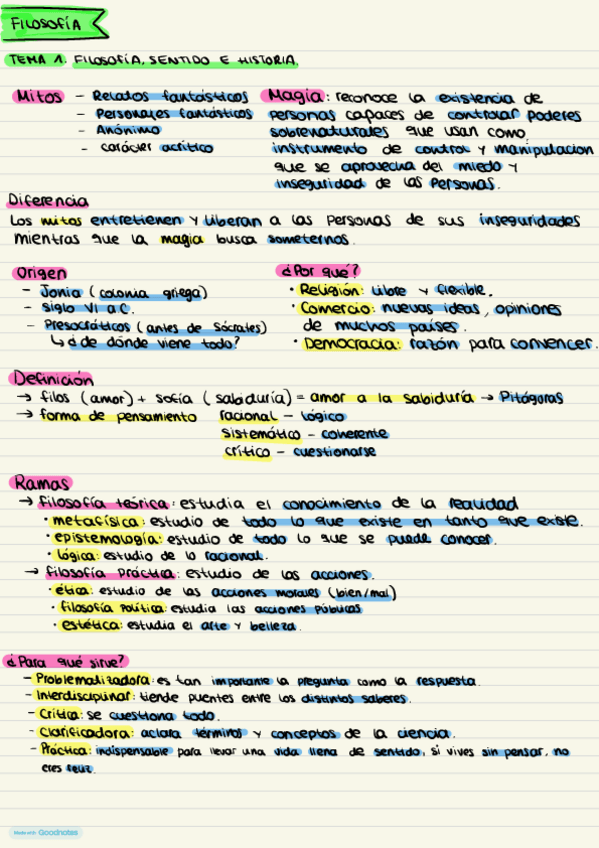 FILOSOFÍA
TEMA 1. FILOSOFÍA, SENTIDO E HISTORIA.
Mitos - Relatos fantásticos
- Personajes fantásticos
- Anónimo
- carácter acrítico
Magia: reconoce la existencia de
personas capaces de controlar poderes
sobrenaturales que usan como
instrumento de control y manipulacion
que se aprovecha del miedo y
inseguridad de las personas.
Diferencia
Los mitos entretienen y liberan a las personas de sus inseguridades
mientras que la magia busca someternos.
Origen
- Jonia (colonia griega)
- Siglo VI a.C.
- Presocráticos (antes de Sócrates)
↳ ¿de dónde viene todo?
¿Por qué?
• Religión: libre y flexible.
• Comercio: nuevas ideas, opiniones
de muchos países.
• Democracia: razón para convencer.
Definición
→ filos (amor) + sofía (sabiduría) = amor a la sabiduría → Pitágoras
→ forma de pensamiento racional - lógico
sistemático - coherente
crítico - cuestionarse
Ramas
→ filosofía teórica: estudia el conocimiento de la realidad
• metafísica: estudio de todo lo que existe en tanto que existe.
• epistemología: estudio de todo lo que se puede conocer.
• lógica: estudio de lo racional.
→ filosofía práctica: estudio de las acciones.
• ética: estudio de las acciones morales (bien/mal)
• filosofía política: estudia las acciones públicas
• estética: estudia el arte y belleza.
¿Para qué sirve?
- Problematizadora: es tan importante la pregunta como la respuesta.
- Interdisciplinar: tiende puentes entre los distintos saberes.
- Crítica: se cuestiona todo.
- Clarificadora: aclara términos y conceptos de la ciencia.
- Práctica: indispensable para llevar una vida llena de sentido, si vives sin pensar, no
eres feliz.
Made with Goodnotes